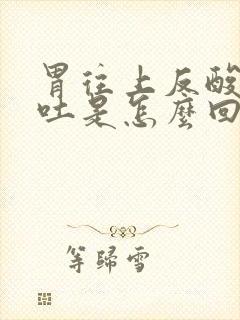 胃往上反酸
吐是怎麼回
等歸雪